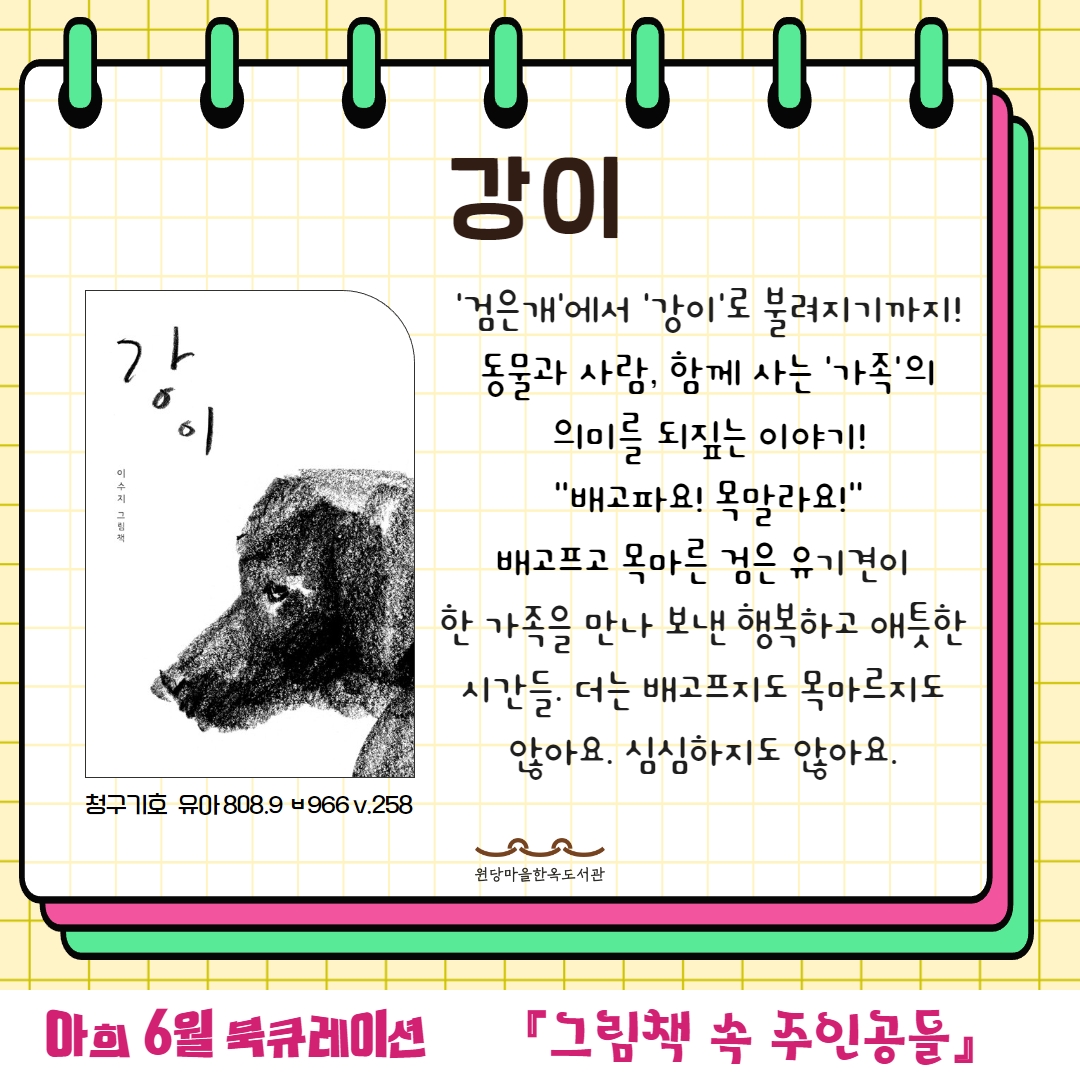 강이
강
이
이수지 그림책
'검은개'에서 '강이'로 불려지기까지!
동물과 사람, 함께 사는 '가족'의
의미를 되짚는 이야기!
"배고파요! 목말라요!"
배고프고 목마른 검은 유기견이
한 가족을 만나 보낸 행복하고 애틋한
시간들. 더는 배고프지도 목마르지도
않아요. 심심하지도 않아요.
청구기호 유아808.9 ㅂ966 v.258
원당마을한옥도서관
아희 6월 북큐레이션 『그림책 속 주인공들』